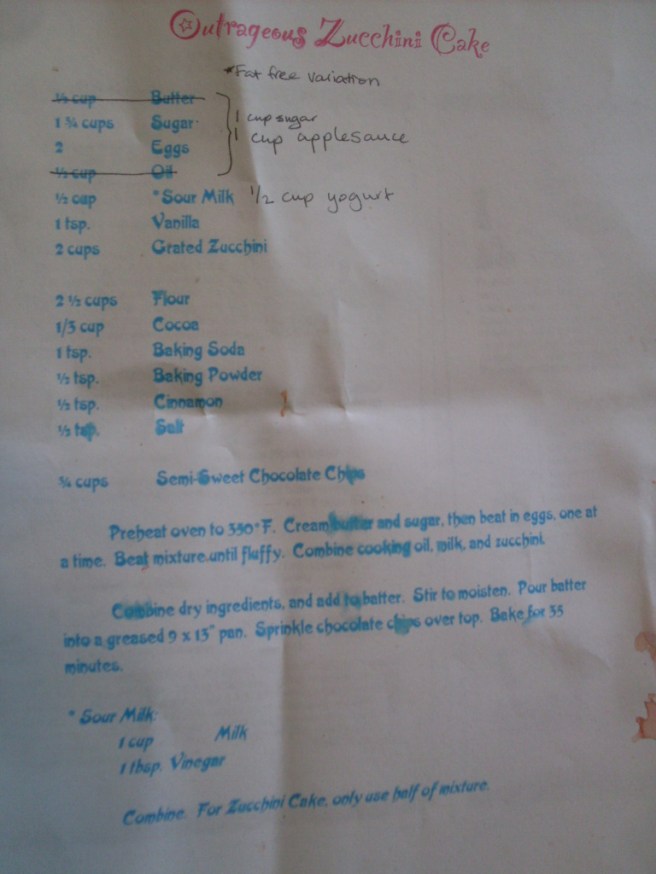 Outrageous Zucchini Cake
*Fat free variation
½ cup Butter
1 ¾ cups Sugar 1 cup sugar
2 Eggs 1 cup applesauce
½ cup Oil
½ cup *Sour Milk 1/2 cup yogurt
1 tsp. Vanilla
2 cups Grated Zucchini
2 ½ cups Flour
1/3 cup Cocoa
1 tsp. Baking Soda
½ tsp. Baking Powder
½ tsp. Cinnamon
½ tsp. Salt
¾ cups Semi-Sweet Chocolate Chips
Preheat oven to 350°F. Cream butter and sugar, then beat in eggs, one at
a time. Beat mixture until fluffy. Combine cooking oil, milk, and zucchini.
Combine dry ingredients, and add to batter. Stir to moisten. Pour batter
into a greased 9 x 13" pan. Sprinkle chocolate chips over top. Bake for 35
minutes.
* Sour Milk:
1 cup Milk
1 tbsp. Vinegar
Combine. For Zucchini Cake, only use half of mixture.